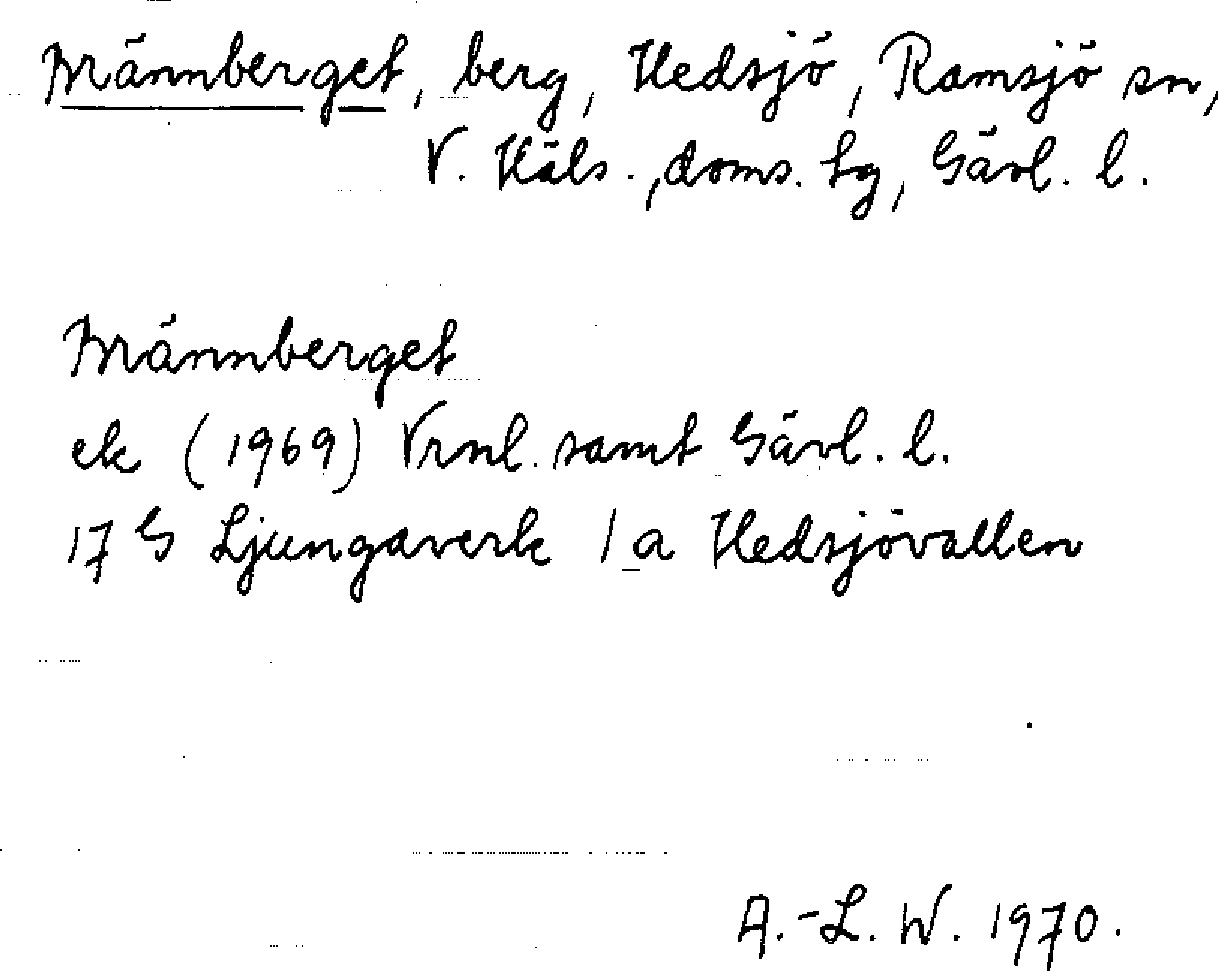 Männberget, berg, Hedsjö, Ramsjö sn,
V. Häls., doms. hg, Gävl. l.
Männberget
ek (1969) Vrnl. samt Gävl. l.
17 G Ljungaverk 1 a Hedsjövallen
A.-L. W. 1970.